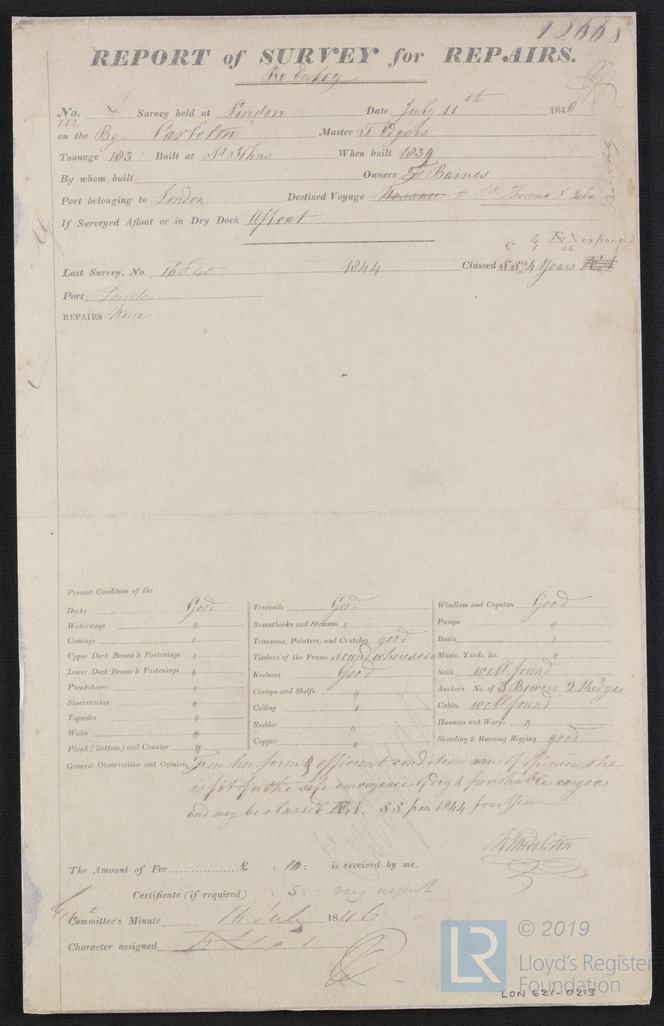 12668
REPORT of SURVEY for REPAIRS.
No. 112 Survey held at London Date July 11th 1846
on the Bg Carleton Master T Byers
Tonnage 183 Built at St Johns When built 1839
By whom built Owners F Barnes
Port belonging to London Destined Voyage Nassau St Thomas &
If Surveyed Afloat or in Dry Dock Afloat
expunged
Last Survey, No. 1844 Classed 4 Years
Port London
REPAIRS None
Present Condition of the
Decks Good
Waterways "
Comings "
Upper Deck Beams & Fastenings "
Lower Deck Beams & Fastenings "
Planksheers "
Sheerstrakes "
Topsides "
Wales "
Plank (Bottom) and Counter "
Treenails Good
Breasthooks and Stemson "
Transoms, Pointers, and Crutches good
Timbers of the Frame
Keelsons Good
Clamps and Shelfs "
Ceiling "
Rudder "
Copper "
Windlass and Capstan Good
Pumps "
Boats "
Masts, Yards, &c. "
Sails well found
Anchors No. of 3 Bowers 2 Kedges
Cables well found
Hawsers and Warps "
Standing & Running Rigging good
General Observations and Opinion, From her firm & efficient condition am of opinion she
is fit for the safe conveyance of dry & perishable cargoes
and may be classed Æ 1. SS from 1844 four Years
W Middleton
The Amount of Fee £ : 10 : is received by me,
Certificate (if required) : 5 : very urgent
Committee's Minute 16 July 1846
Character assigned
© 2019
LR
Lloyd's Register
Foundation
LON 621-0213